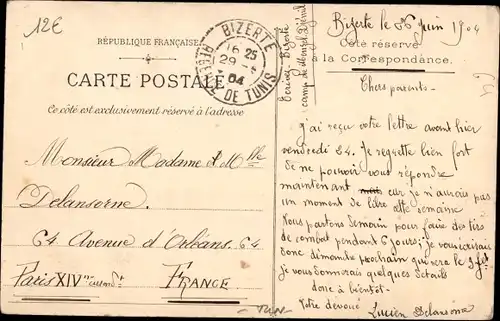 12€
RÉPUBLIQUE FRANÇAISE
CARTE POSTALE
Ce côté est exclusivement réservé à l'adresse
BIZERTE
16 25
29
04
DE TUNIS
Monsieur Madame et Mlle
Delansorne.
64 Avenue d'Orléans. 64
Paris XIVme arrondt
FRANCE
Écrivez Bizerte
camp de
Bizerte le 26 Juin 1904
Côté réservé
à la Correspondance.
Chers parents -
j'ai reçu votre lettre avant hier
vendredi 24. Je regrette bien fort
de ne pouvoir vous répondre
maintenant car je n'aurais pas
un moment de libre cette semaine
Nous partons demain pour faire des tirs
de combat pendant 6 jours; je vous écrirais
donc dimanche prochain qui sera le 3 jt
je vous donnerais quelques détails
donc à bientôt -
Votre dévoué Lucien Delansorne
TUN